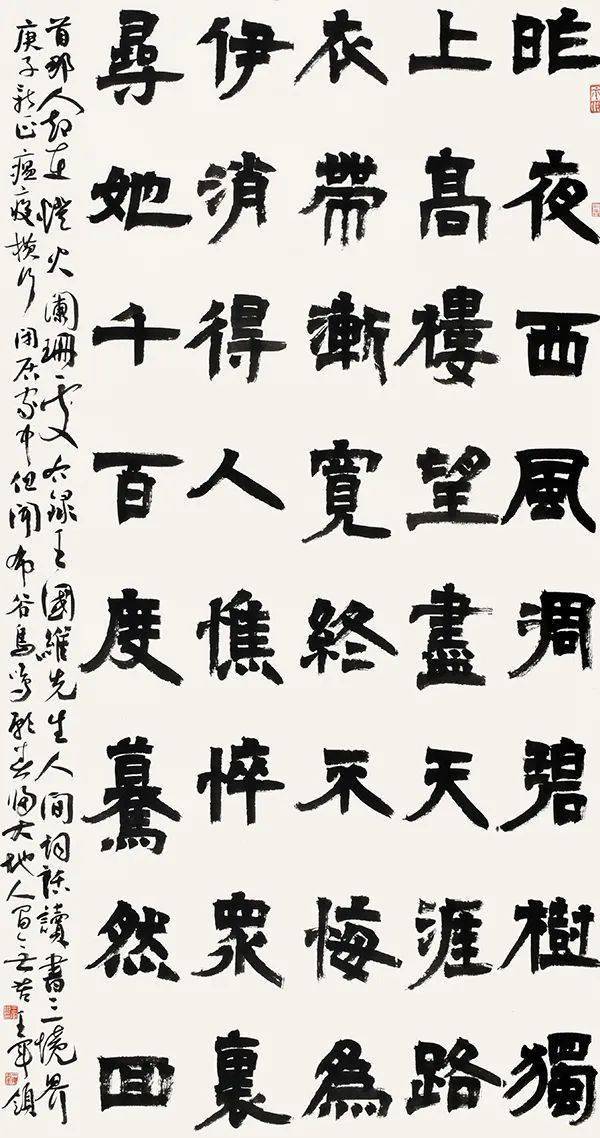 昨夜西風凋碧樹獨
上高樓望盡天涯路
衣帶漸寬終不悔為
伊消得人憔悴眾裏
尋她千百度驀然回
首那人却在燈火闌珊處右録王國維先生人間詞話讀書三境界
庚子新正瘟疫橫行閉居家中但聞布谷鳥鳴願春歸大地人間無苦王軍領